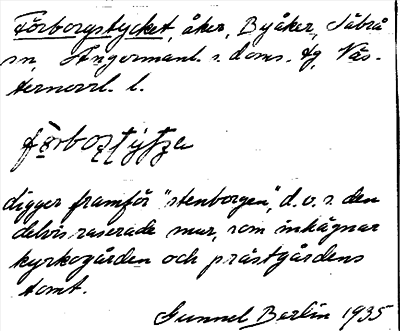 Förborgstycket, åker, Byåker, Säbrå
sn, Ångermanl. s. doms. tg, Väs-
ternorrl. l.
förbortytza
ligger framför "stenborgen", d. v. s. den
delvis raserade mur, som inhägnar
kyrkogården och prästgårdens
tomt.
Gunnel Berlin 1935